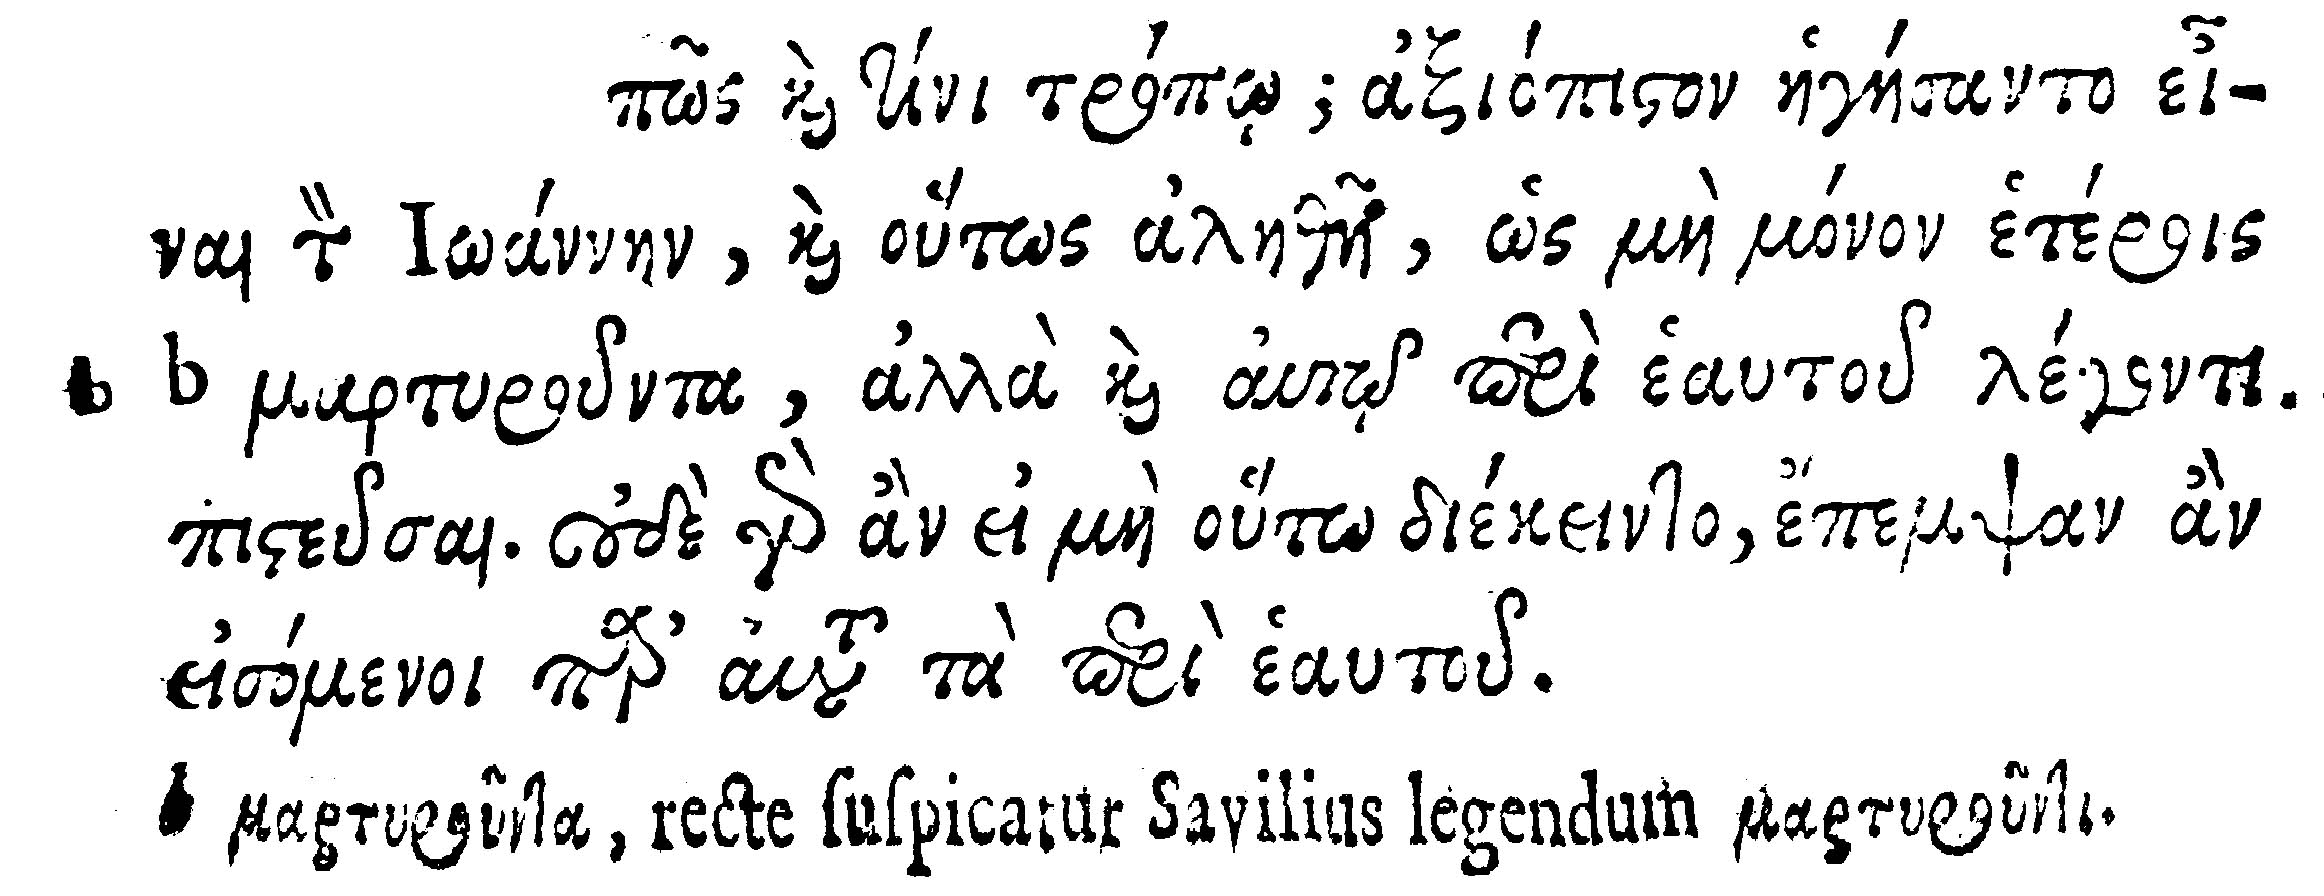 πῶς καὶ τίνι τρόπῳ; ἀξιόπιστον ἡγήσαντο εἶ-
ναι τὸν Ἰωάννην, καὶ οὕτως ἀληθῆ, ὡς μὴ μόνον ἑτέροις
b b μαρτυροῦντα, ἀλλὰ καὶ αὐτῷ περὶ ἑαυτοῦ λέγοντι.
πιστεῦσαι. οὐδὲ γὰρ ἂν εἰ μὴ οὕτω διέκειντο, ἔπεμψαν ἂν
εἰσόμενοι παρ' αὐτοῦ τὰ περὶ ἑαυτοῦ.
b μαρτυροῦντα, recte ſuſpicatur Savilius legendum μαρτυροῦντι.